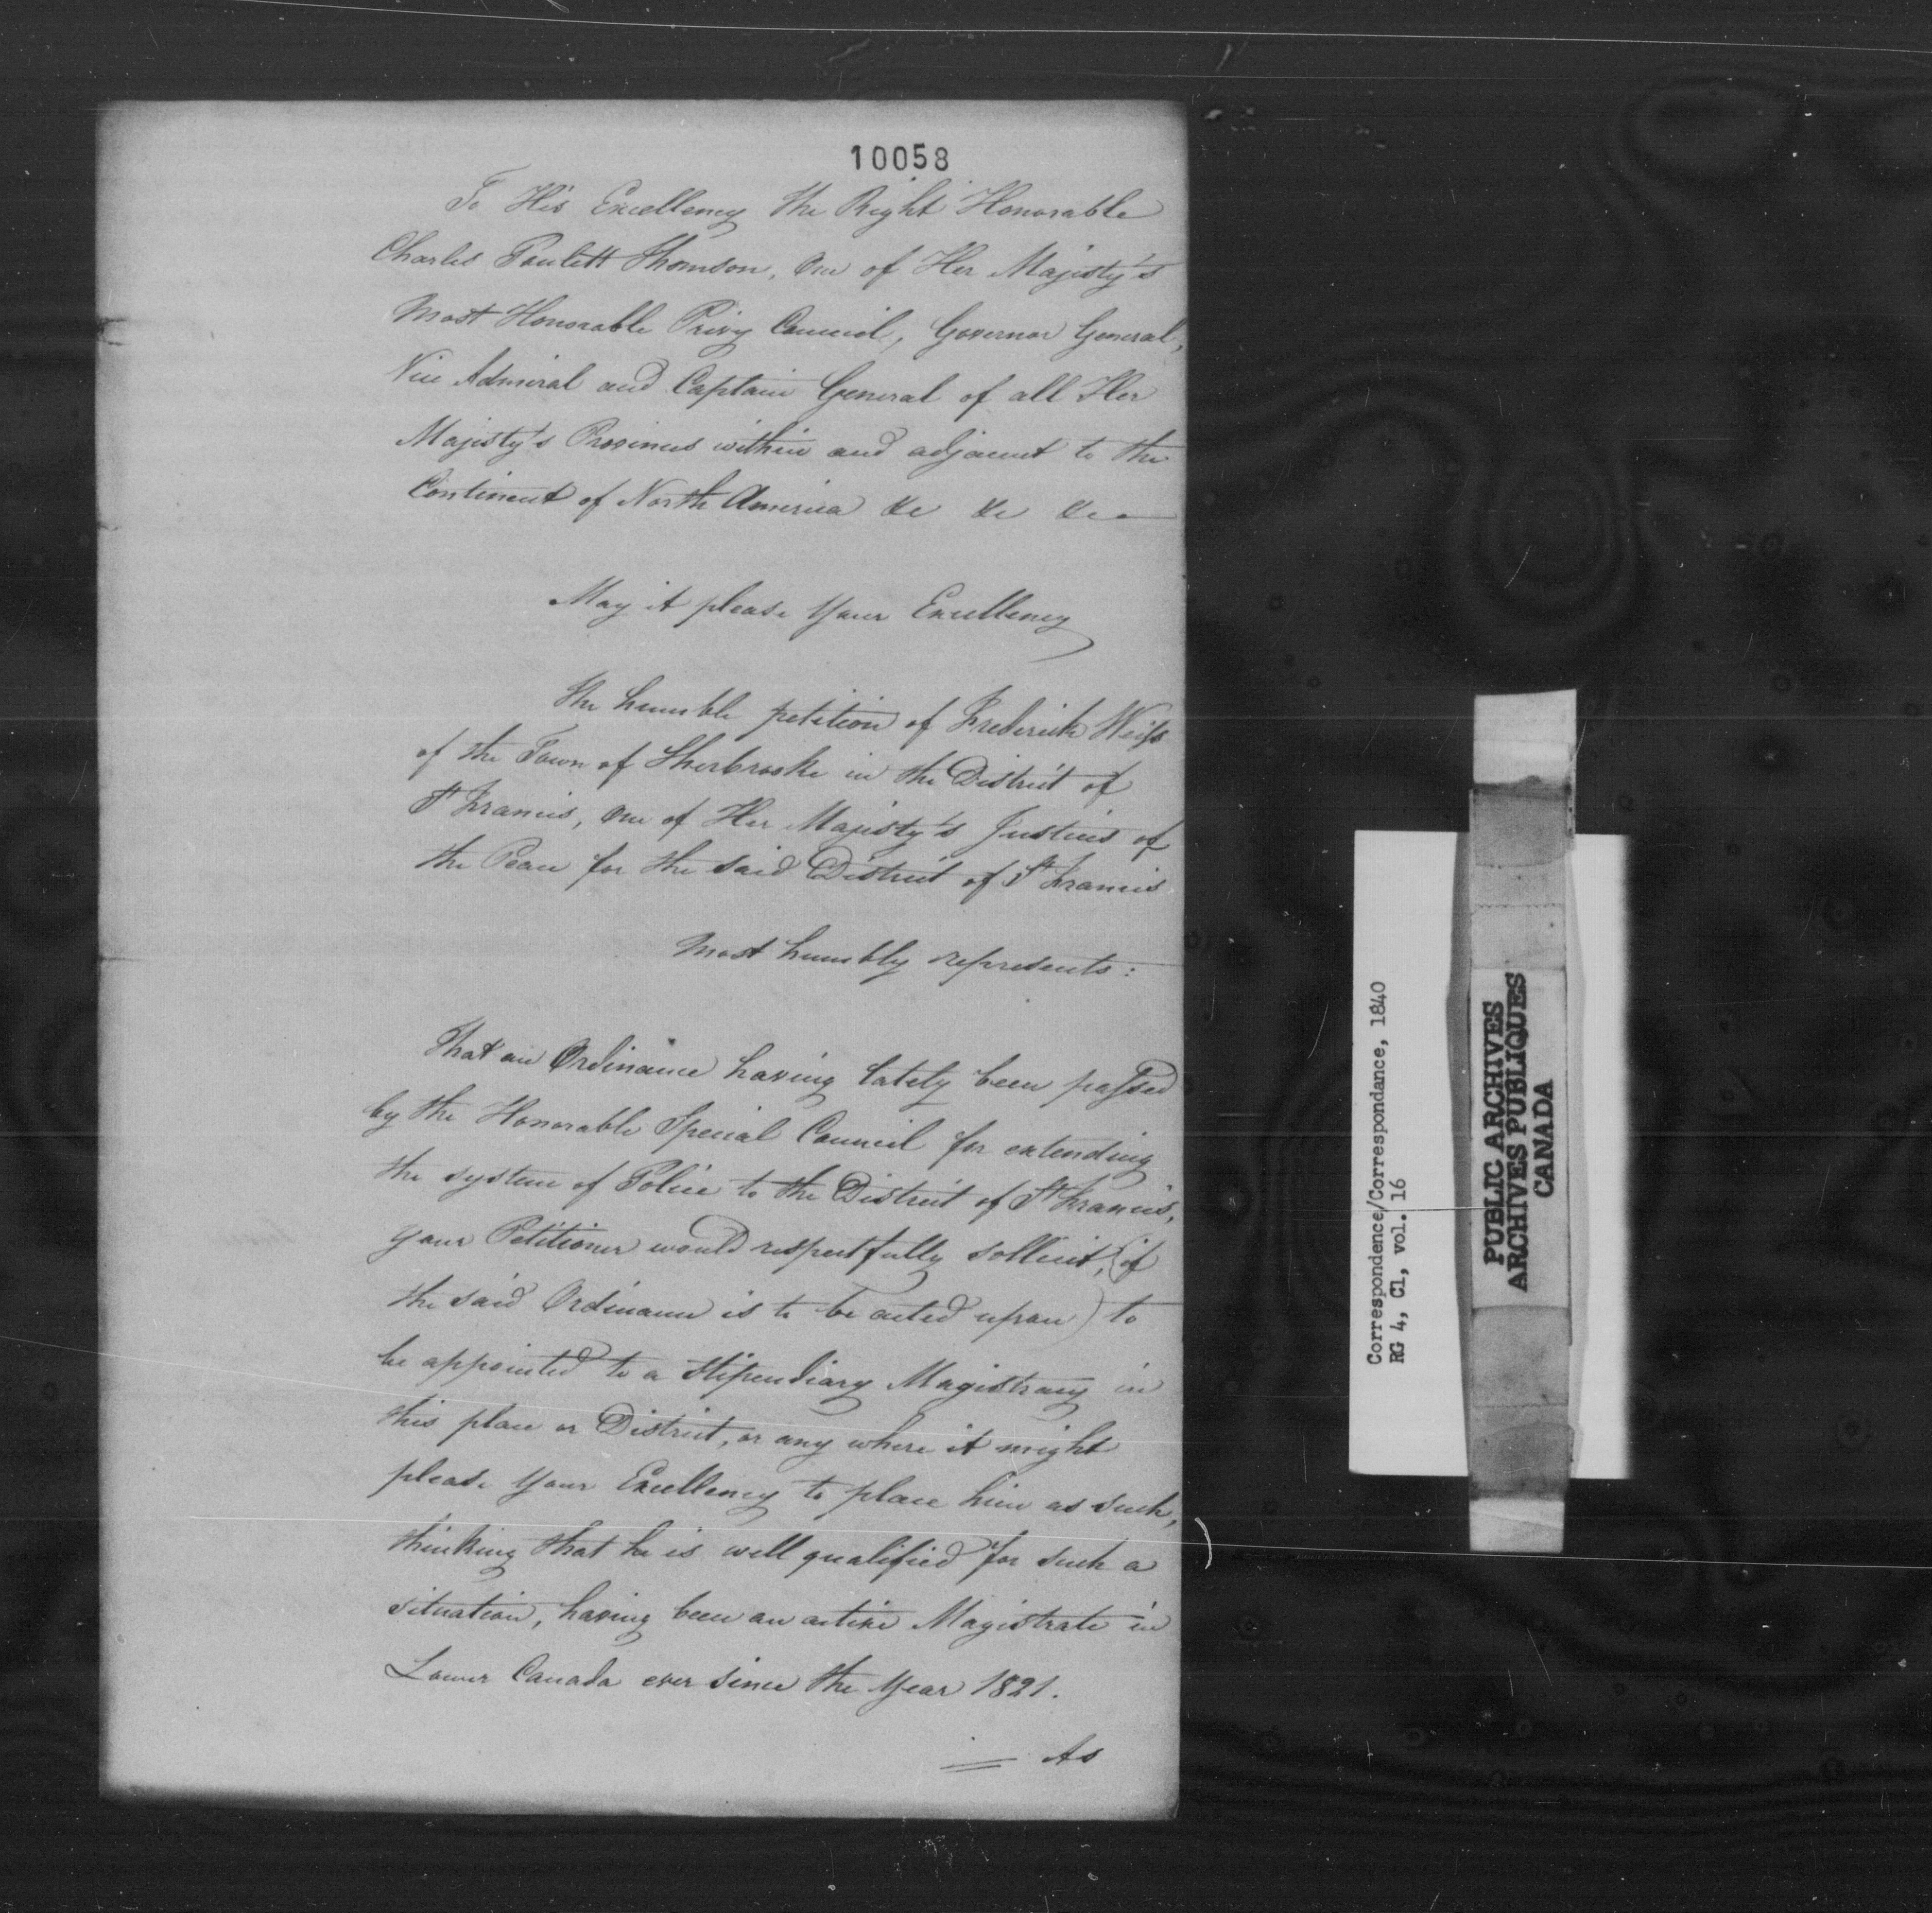 10058
To His Excellency the Right Honorable
Charles Poulett Thomson, One of Her Majesty's
Most Honorable Privy Council, Governor General,
Vice Admiral and Captain General of all Her
Majesty's Provinces within and adjacent to the
Continent of North America &c &c &c
May it please Your Excellency
The humble petition of Frederick Weiss
of the Town of Sherbrooke in the District of
St Francis, One of Her Majesty's Justices of
the Peace for the said District of St Francis
Most humbly represents:
That an Ordinance having lately been passed
by the Honorable Special Council for extending
the system of Police to the District of St Francis,
Your Petitioner would respectfully sollicit, (if
the said Ordinance is to be acted upon) to
be appointed to a Stipendiary Magistracy in
this place or District, or any where it might
please Your Excellency to place him as such,
thinking that he is well qualified for such a
situation, having been an active Magistrate in
Lower Canada ever since the Year 1821.
As
Correspondence/Correspondance, 1840
RG 4, C1, vol. 16
PUBLIC ARCHIVES
ARCHIVES PUBLIQUES
CANADA